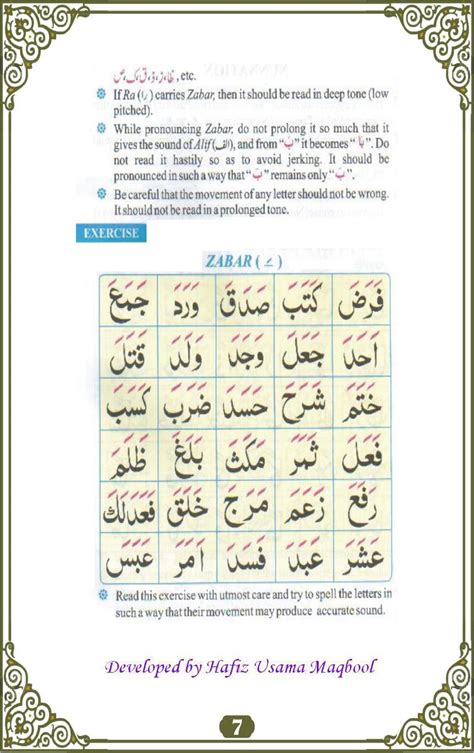 ظ، ز، ذ، ق، ک، ص, etc.
If Ra (را) carries Zabar, then it should be read in deep tone (low
pitched).
While pronouncing Zabar, do not prolong it so much that it
gives the sound of Alif (الف), and from “بَ” it becomes “بَا”. Do
not read it hastily so as to avoid jerking. It should be
pronounced in such a way that “بَ” remains only “بَ”.
Be careful that the movement of any letter should not be wrong.
It should not be read in a prolonged tone.
EXERCISE
ZABAR ( ـَ )
فَرَضَ كَتَبَ صَدَقَ وَرَدَ جَمَعَ
اَحَدَ جَعَلَ وَجَدَ وَلَدَ قَتَلَ
خَتَمَ شَرَحَ حَسَدَ ضَرَبَ كَسَبَ
فَعَلَ ثَمَرَ مَكَثَ بَلَغَ ظَلَمَ
رَفَعَ زَعَمَ مَرَجَ خَلَقَ فَعَدَلَكَ
عَشَرَ عَبَدَ فَسَدَ اَمَرَ عَبَسَ
Read this exercise with utmost care and try to spell the letters in
such a way that their movement may produce accurate sound.
Developed by Hafiz Usama Maqbool
7